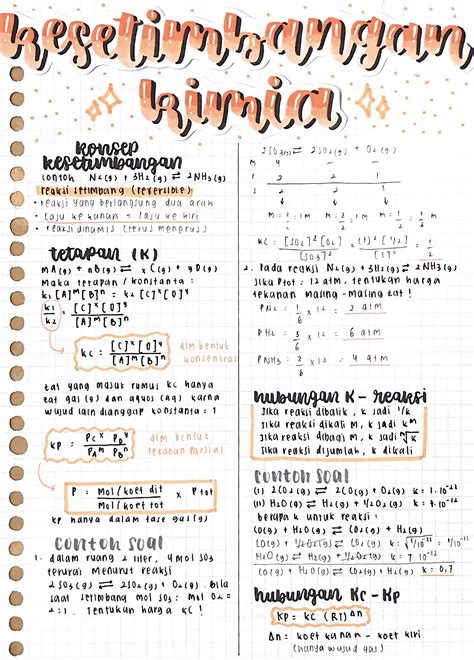 kesetimbangan
kimia
konsep
kesetimbangan
contoh N₂(g) + 3H₂(g) ⇌ 2NH₃(g)
reaksi setimbang (reversible)
• reaksi yang berlangsung dua arah
• laju ke kanan = laju ke kiri
• reaksi dinamis (terus menerus)
tetapan (K)
mA(g) + nB(g) ⇌ xC(g) + yD(g)
Maka tetapan / konstanta :
k₁[A]ᵐ[B]ⁿ = k₂[C]ˣ[D]ʸ
k₁/k₂ = [C]ˣ[D]ʸ / [A]ᵐ[B]ⁿ
kc : [C]ˣ[D]ʸ / [A]ᵐ[B]ⁿ dlm bentuk
konsentrasi
zat yang masuk rumus kc hanya
zat gas (g) dan aquos (aq) karna
wujud lain dianggap konstanta : 1
kp = Pcˣ PDʸ / PAᵐ PBⁿ dlm bentuk
tekanan parsial
P : Mol/koef dit / Mol/koef tot x P tot
kp hanya dalam fase gas (g)
contoh soal
1. dalam ruang 2 liter, 4 mol SO₃
terurai menurut reaksi
2SO₃(g) ⇌ 2SO₂(g) + O₂(g). Bila
saat setimbang mol SO₃ : mol O₂ =
2:1. Tentukan harga kc !
2SO₃(g) ⇌ 2SO₂(g) + O₂(g)
M 4 - -
r 2 2 1
S 2 2 1
M = 2/2 = 1 M M = 2/2 = 1 M = 1/2 = 1/2 M
kc = [SO₂]²[O₂] / [SO₃]² = (1)²[1/2] / [1]² = 1/2
2. Pada reaksi N₂(g) + 3H₂(g) ⇌ 2NH₃(g)
Jika Ptot = 12 atm, tentukan harga
tekanan masing-masing zat !
PN₂ = 1/6 x 12 = 2 atm
PH₂ = 3/6 x 12 = 6 atm
PNH₃ = 2/6 x 12 = 4 atm
hubungan K - reaksi
Jika reaksi dibalik, k jadi 1/k
Jika reaksi dikali M, k jadi kᵐ
Jika reaksi dibagi m, k jadi ᵐ√k
Jika reaksi dijumlah, k dikali
contoh soal
(I) 2CO₂(g) ⇌ 2CO(g) + O₂(g) k = 1.10⁻²²
(II) H₂O(g) ⇌ H₂(g) + ½O₂(g) k = 7.10⁻¹²
berapa k untuk reaksi :
CO(g) + H₂O(g) ⇌ CO₂(g) + H₂(g)
CO(g) + ½O₂(g) ⇌ CO₂(g)
H₂O(g) ⇌ H₂(g) + ½O₂(g) k = 7.10⁻¹²
CO(g) + H₂O(g) ⇌ CO₂(g) + H₂(g) k = 0,7
hubungan Kc - Kp
KP = KC (RT)^Δn
Δn : koef kanan - koef kiri
(hanya wujud gas)